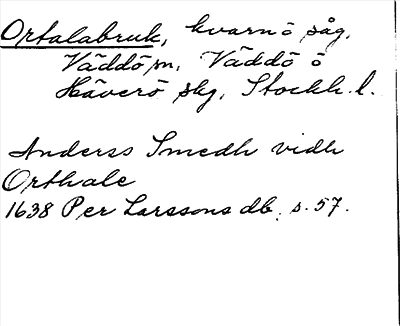 Ortalabruk, kvarn o såg,
Väddö sn, Väddö o
Häverö skg, Stockh. l.
Anders Smedh vidh
Orthale
1638 Per Larssons db. s. 57.